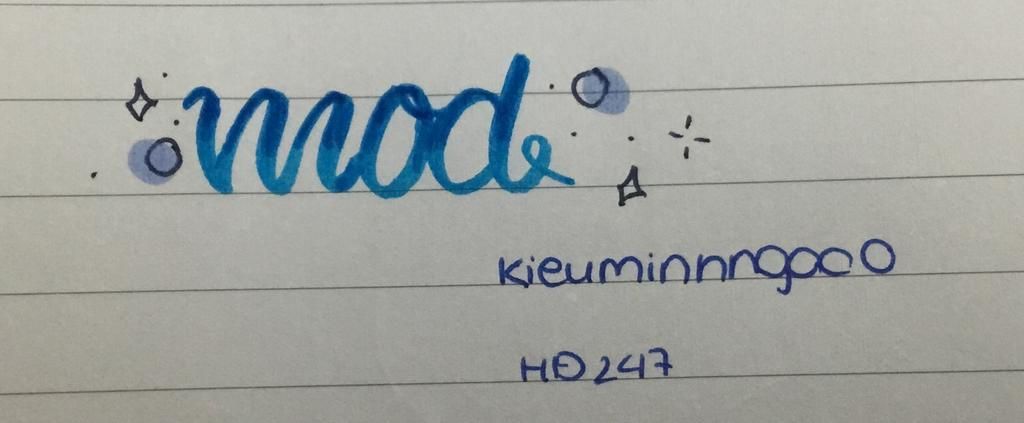 mode
kieuminnngoc0
HĐ247